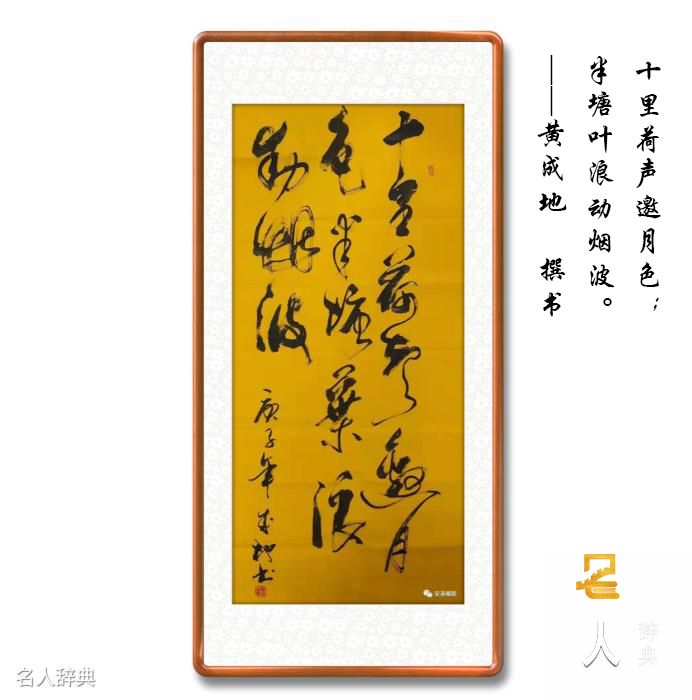 十里荷声邀月色；
半塘叶浪动烟波。
——黄成地 撰书
十里荷声邀月
色半塘葉浪
动烟波
庚子年成地书
安溪楹联
名人辞典
名
人
辞典